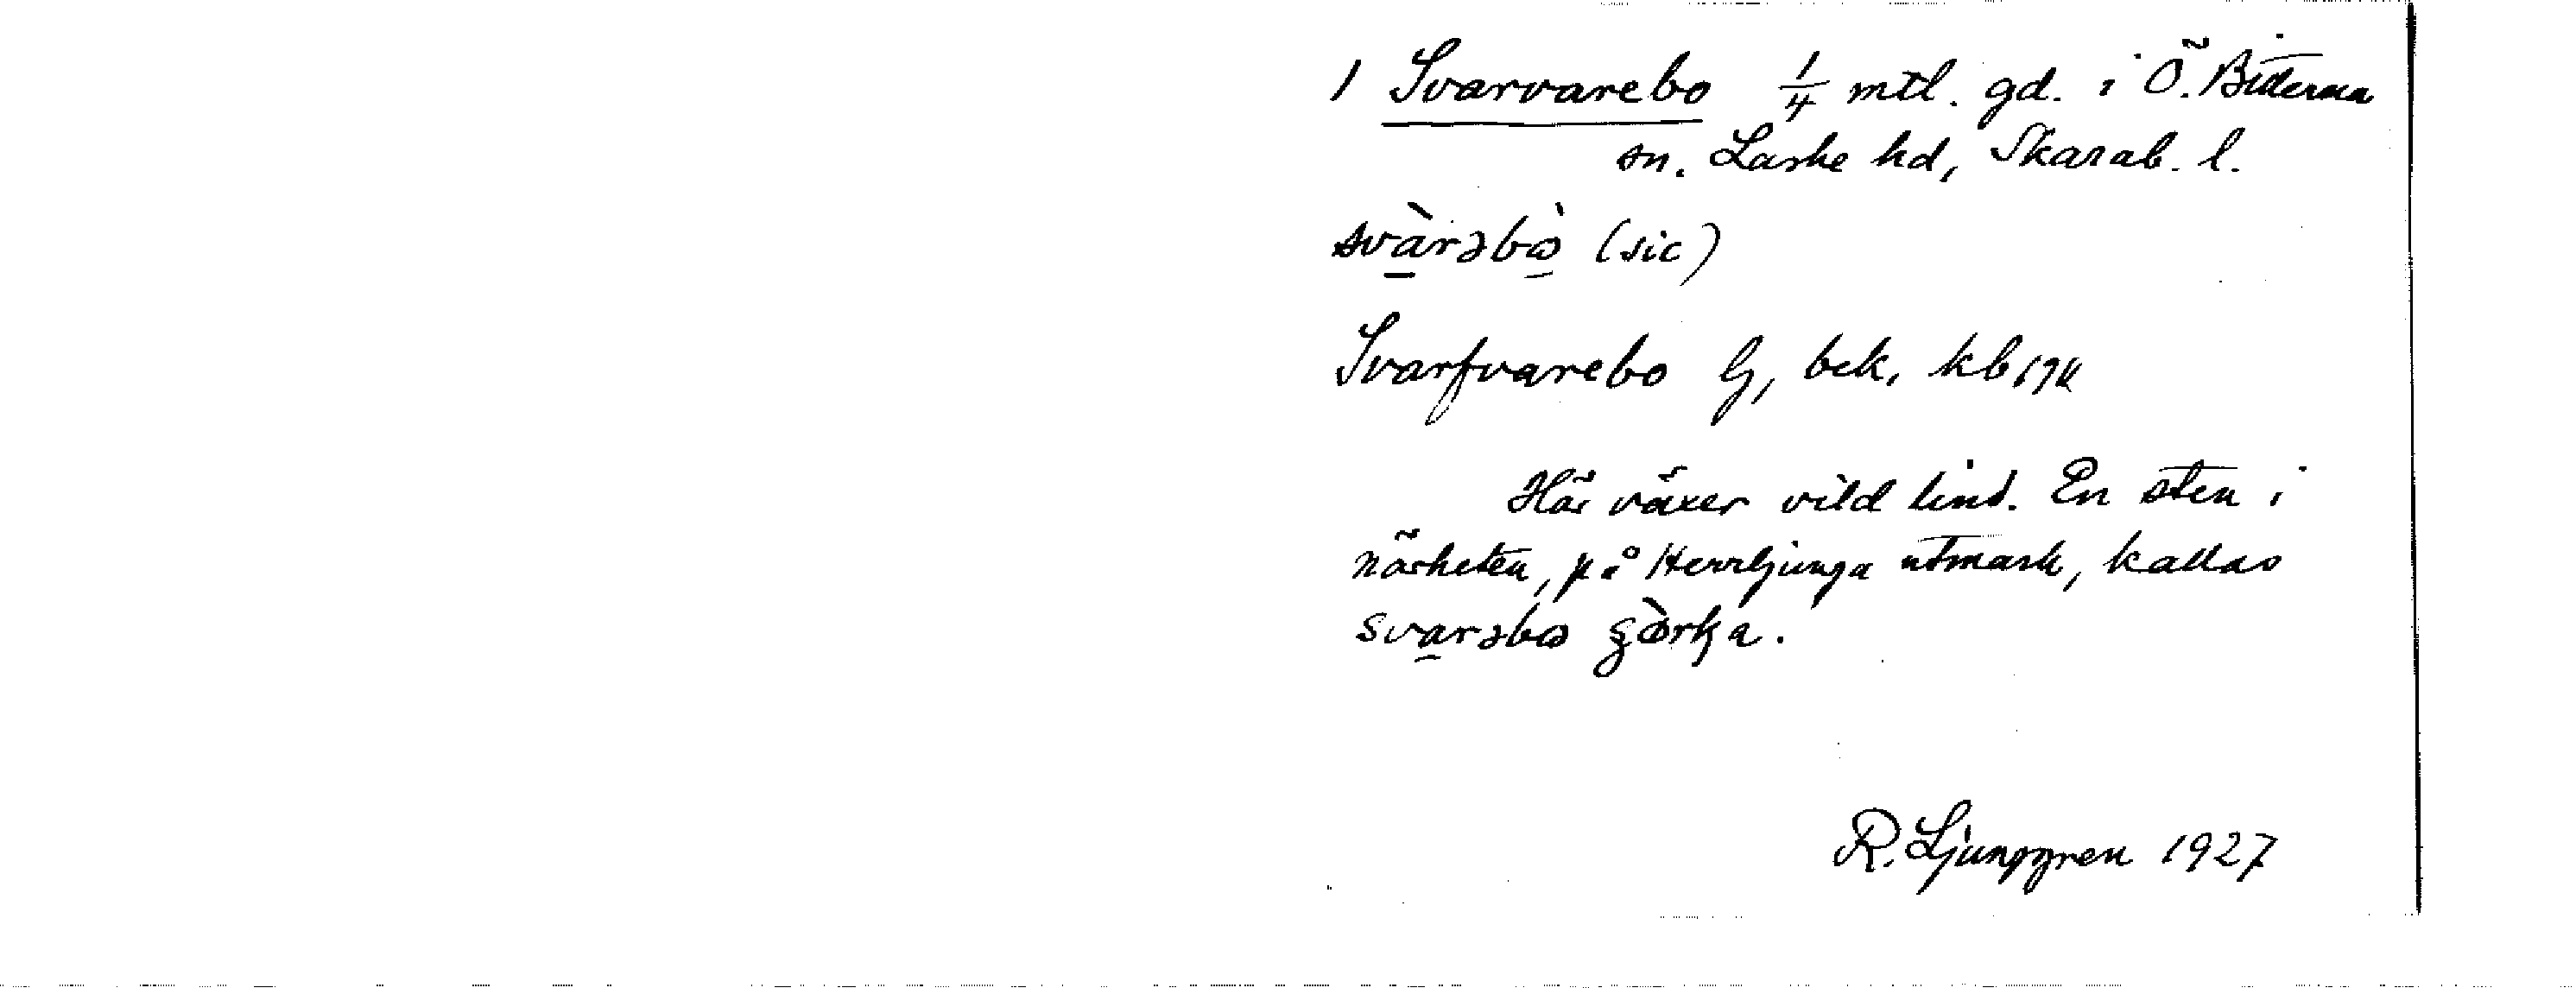 1 Svarvarebo 1/4 mtl. gd. i Ö. Bitterna
sn. Laske hd, Skarab. l.
svàrəbò (sic)
Svarfvarebo Lj, bek, kb 1711
Här växer vild lind. En sten i
närheten, på Herrljunga utmark, kallas
svarəbo
R. Ljunggren 1927